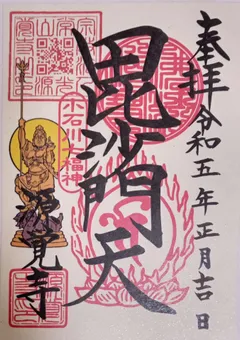 奉拝
令和五年正月吉日
毘沙門天
小石川七福神
源覚寺